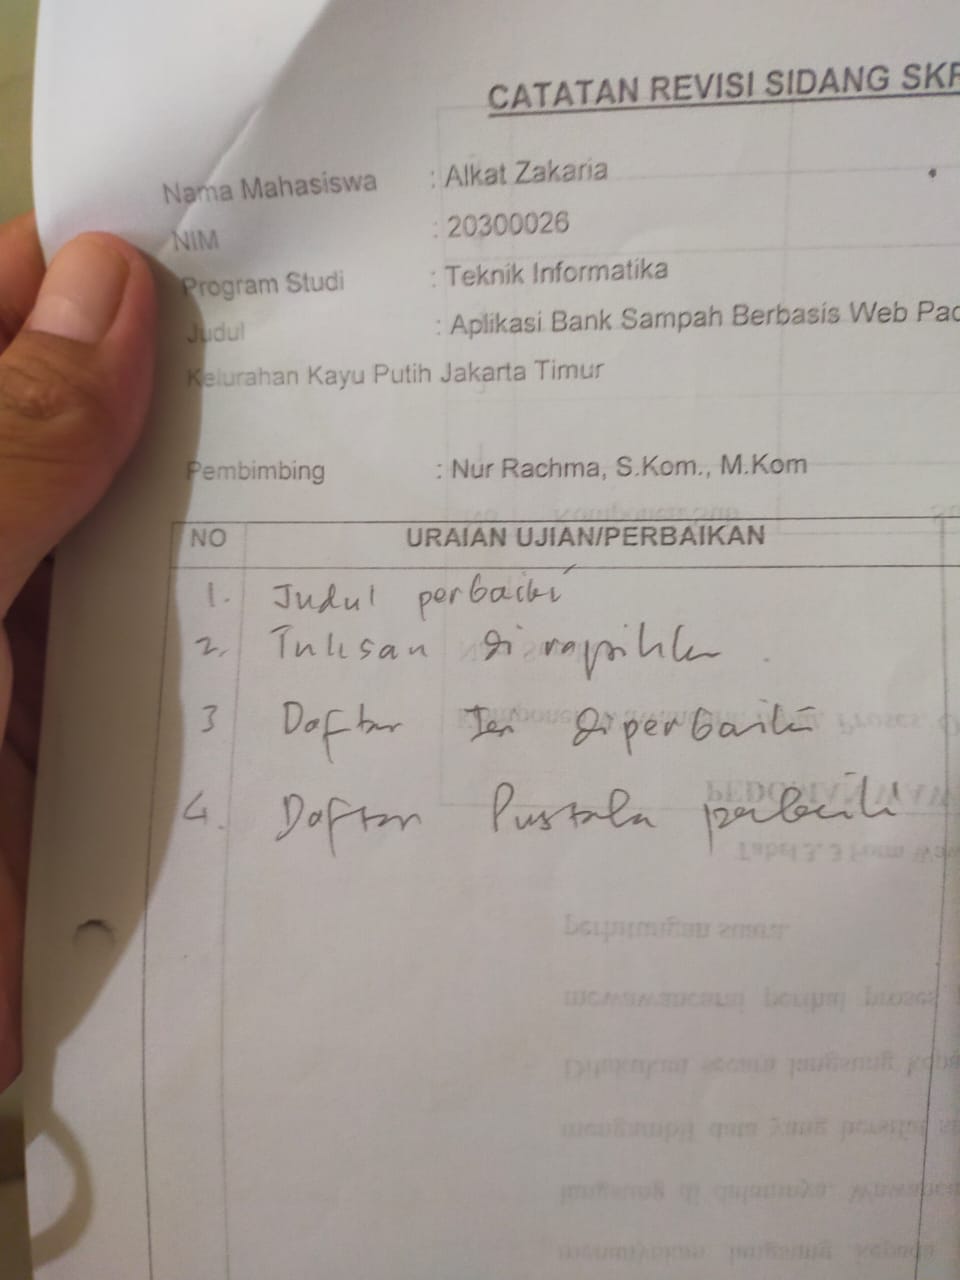 CATATAN REVISI SIDANG SKR
Nama Mahasiswa : Alkat Zakaria
NIM : 20300026
Program Studi : Teknik Informatika
Judul : Aplikasi Bank Sampah Berbasis Web Pad
Kelurahan Kayu Putih Jakarta Timur
Pembimbing : Nur Rachma, S.Kom., M.Kom
NO URAIAN UJIAN/PERBAIKAN
1. Judul perbaiki
2. Tulisan di rapihkn
3 Daftar Isi diperbaiki
4. Daftar Pustaka perbaiki